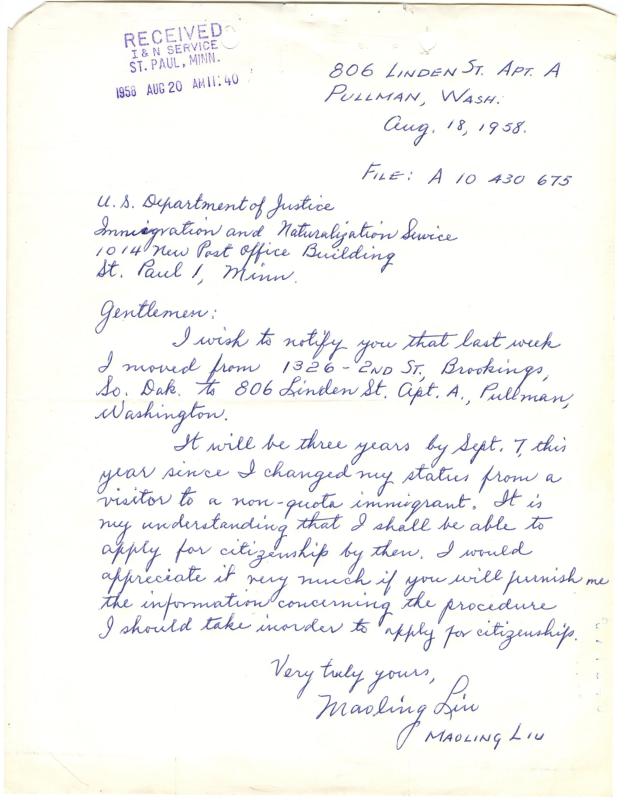 RECEIVED
I & N SERVICE
ST. PAUL, MINN.
1958 AUG 20 AM 11:40
806 LINDEN ST. APT. A
PULLMAN, WASH.
Aug. 18, 1958.
FILE: A 10 430 675
U. S. Department of Justice
Immigration and Naturalization Service
1014 New Post Office Building
St. Paul 1, Minn.
Gentlemen:
I wish to notify you that last week
I moved from 1326 - 2ND ST., Brookings,
So. Dak. to 806 Linden St. Apt. A., Pullman,
Washington.
It will be three years by Sept. 7, this
year since I changed my status from a
visitor to a non-quota immigrant. It is
my understanding that I shall be able to
apply for citizenship by then. I would
appreciate it very much if you will furnish me
the information concerning the procedure
I should take inorder to apply for citizenship.
Very truly yours,
Maoling Liu
MAOLING LIU